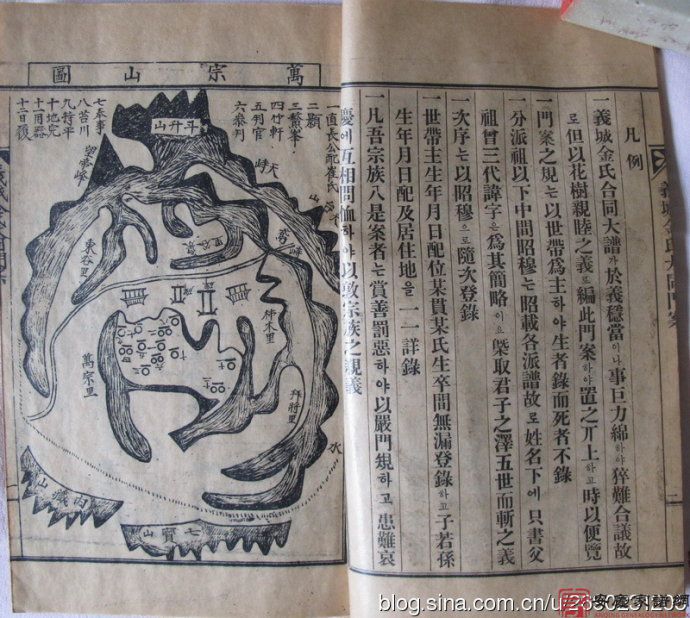 義城金氏大同門案
凡例
一義城金氏合同大譜가於義穩當이나事巨力綿하야猝難合議故
로但以花樹親睦之義로編此門案하야置之丌上하고時以便覽
一門案之規는以世帶爲主하야生者錄而死者不錄
一分派祖以下中間昭穆는昭載各派譜故로姓名下에只書父
祖曾三代諱字은爲其簡略이요槩取君子之澤五世而斬之義
一次序는以昭穆으로隨次登錄
一世帶主生年月日配位某貫某氏生卒間無漏登錄하고子若孫
生年月日配及居住地을一一詳錄
一凡吾宗族入是案者는賞善罰惡하야以嚴門規하고患難哀
慶에互相問恤하야以敦宗族之親義
萬宗山圖
一直長公配崔氏
三鰲峯
四竹軒
五判官
六參判
七奉事
八苔川
九持平
十地完
斗升山
天峙
東谷里
萬宗里
佛木里
拜將里
水
七寶山
blog.sina.com.cn/u/2630231203
安慶家譜網